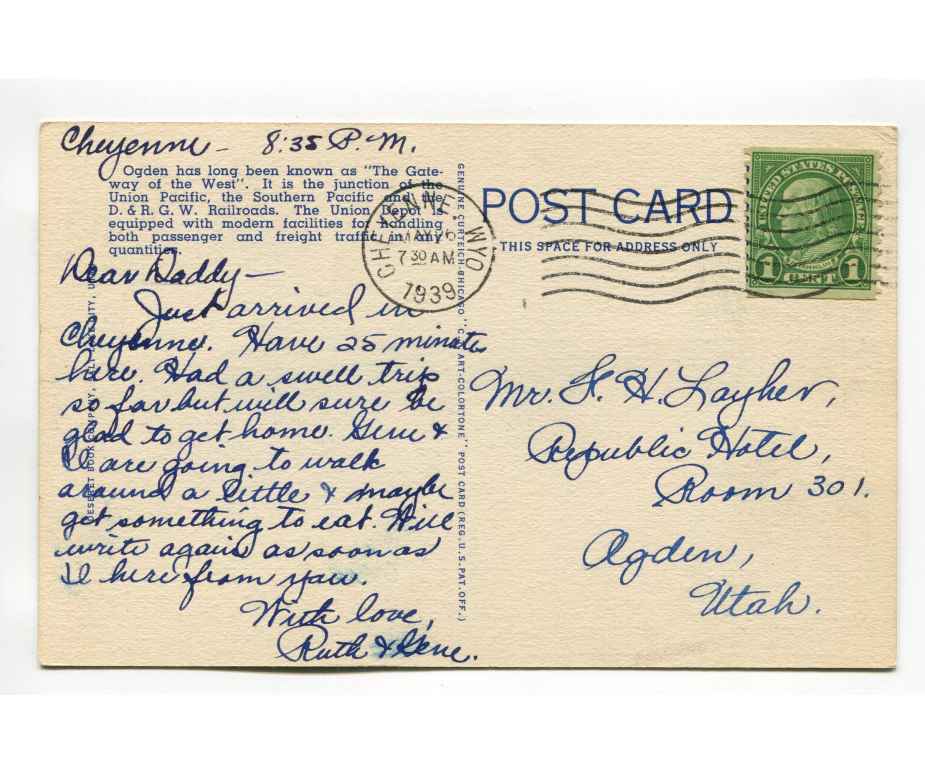 Cheyenne - 8:35 P.M.
Ogden has long been known as "The Gate-
way of the West". It is the junction of the
Union Pacific, the Southern Pacific and the
D. & R. G. W. Railroads. The Union Depot is
equipped with modern facilities for handling
both passenger and freight traffic in any
quantities.
Dear Daddy -
Just arrived in
Cheyenne. Have 25 minutes
here. Had a swell trip
so far but will sure be
glad to get home. Gene &
I are going to walk
around a little & maybe
get something to eat. Will
write again as soon as
I here from you.
With love,
Ruth & Gene.
DESERET BOOK COMPANY,
GENUINE CURTEICH-CHICAGO "C.T. ART-COLORTONE" POST CARD (REG. U.S. PAT. OFF.)
CHEYENNE, WYO.
MAY 26
7 30 AM
1939
POST CARD
THIS SPACE FOR ADDRESS ONLY
UNITED STATES POSTAGE
1 1
Mr. F. H. Layher,
Republic Hotel,
Room 301.
Ogden,
Utah.